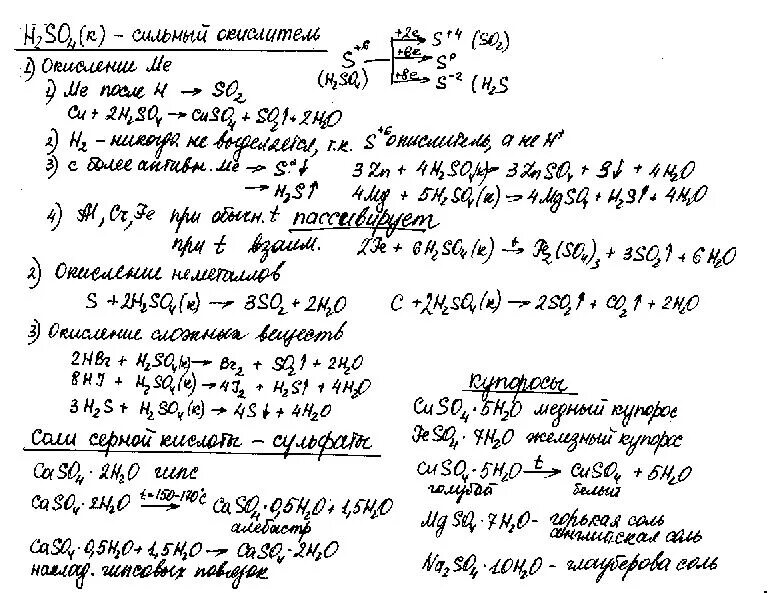 H₂SO₄(к) – сильный окислитель
S⁺⁶ (H₂SO₄)
+2e → S⁺⁴ (SO₂)
+6e → S⁰
+8e → S⁻² (H₂S
1) Окисление Ме
1) Ме после H → SO₂
Cu + 2H₂SO₄ → CuSO₄ + SO₂↑ + 2H₂O
2) H₂ – никогда не выделяется, т.к. S⁺⁶ окислитель, а не H⁺
3) с более активн. Ме → S⁰↓ 3Zn + 4H₂SO₄(к) → 3ZnSO₄ + S↓ + 4H₂O
→ H₂S↑ 4Mg + 5H₂SO₄(к) → 4MgSO₄ + H₂S↑ + 4H₂O
4) Al, Cr, Fe при обычн. t пассивирует
при t взаим. 2Fe + 6H₂SO₄(к) –t→ Fe₂(SO₄)₃ + 3SO₂↑ + 6H₂O
2) Окисление неметаллов
S + 2H₂SO₄(к) → 3SO₂ + 2H₂O C + 2H₂SO₄(к) → 2SO₂↑ + CO₂↑ + 2H₂O
3) Окисление сложных веществ
2HBr + H₂SO₄(к) → Br₂ + SO₂↑ + 2H₂O
8HJ + H₂SO₄(к) → 4J₂ + H₂S↑ + 4H₂O
3H₂S + H₂SO₄(к) → 4S↓ + 4H₂O
Соли серной кислоты – сульфаты
CaSO₄·2H₂O гипс
CaSO₄·2H₂O –t=150-170°C→ CaSO₄·0,5H₂O + 1,5H₂O
алебастр
CaSO₄·0,5H₂O + 1,5H₂O → CaSO₄·2H₂O
наклад. гипсовых повязок
Купоросы
CuSO₄·5H₂O медный купорос
FeSO₄·7H₂O железный купорос
CuSO₄·5H₂O –t→ CuSO₄ + 5H₂O
голубой белый
MgSO₄·7H₂O – горькая соль
английская соль
Na₂SO₄·10H₂O – глауберова соль